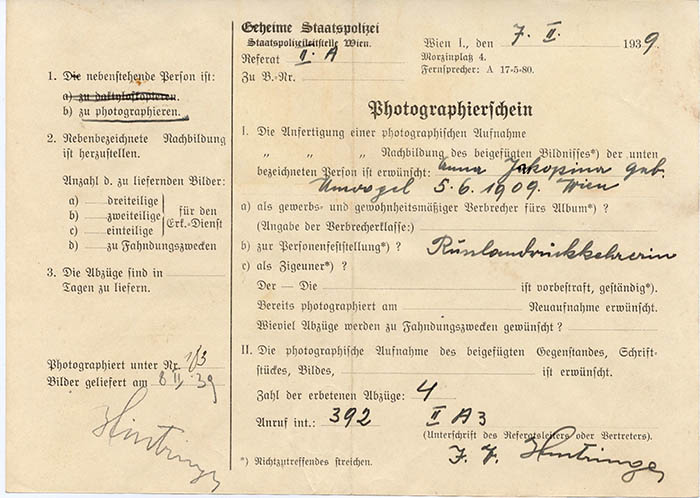 Geheime Staatspolizei
Staatspolizeileitstelle Wien.
Referat II A
Zu B.-Nr.
Wien I., den 7. II. 1939.
Morzinplatz 4.
Fernsprecher: A 17-5-80.
1. Die nebenstehende Person ist:
a) zu daktyloskopieren.
b) zu photographieren.
2. Nebenbezeichnete Nachbildung
ist herzustellen.
Anzahl d. zu liefernden Bilder:
a) dreiteilige
b) zweiteilige
c) einteilige
für den
Erk.-Dienst
d) zu Fahndungszwecken
3. Die Abzüge sind in
Tagen zu liefern.
Photographiert unter Nr. 1/3
Bilder geliefert am 8 II. 39
Hintringer
Photographierschein
I. Die Anfertigung einer photographischen Aufnahme
„ „ Nachbildung des beigefügten Bildnisses*) der unten
bezeichneten Person ist erwünscht: Anna Jakopina geb.
5.6.1909. Wien
a) als gewerbs- und gewohnheitsmäßiger Verbrecher fürs Album*) ?
(Angabe der Verbrecherklasse:)
b) zur Personenfeststellung*) ? Russlandrückkehrerin
c) als Zigeuner*) ?
Der — Die ist vorbestraft, geständig*).
Bereits photographiert am Neuaufnahme erwünscht.
Wieviel Abzüge werden zu Fahndungszwecken gewünscht ?
II. Die photographische Aufnahme des beigefügten Gegenstandes, Schrift-
stückes, Bildes, ist erwünscht.
Zahl der erbetenen Abzüge: 4
Anruf int.: 392 II A 3
(Unterschrift des Referatsleiters oder Vertreters).
Hintringer
*) Nichtzutreffendes streichen.